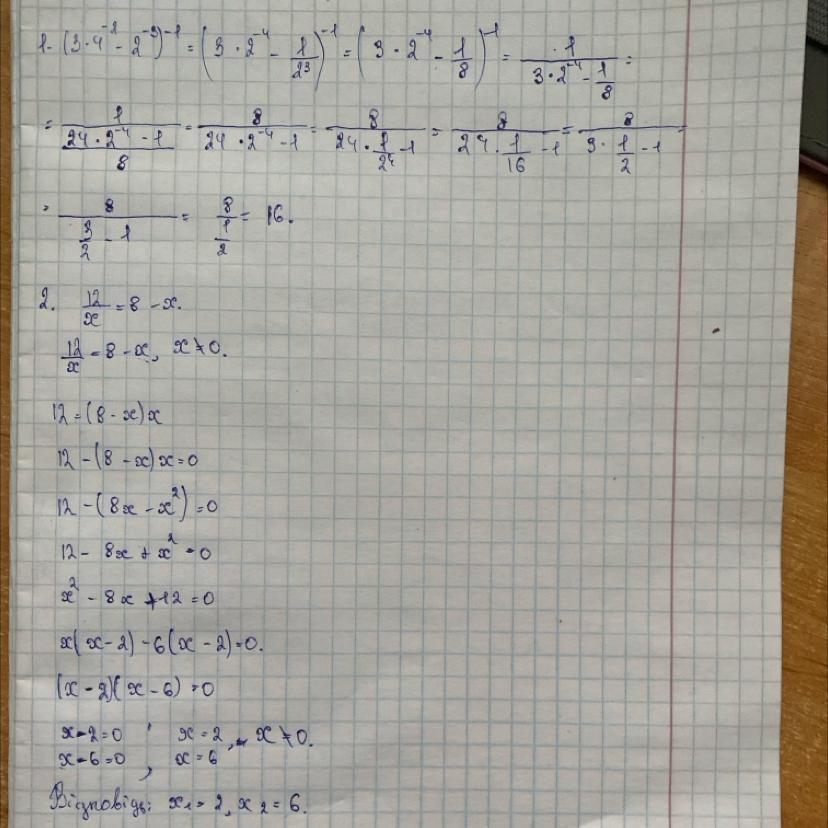 1. (3·4⁻² - 2⁻³)⁻¹ = (3·2⁻⁴ - 1/2³)⁻¹ = (3·2⁻⁴ - 1/8)⁻¹ = 1/(3·2⁻⁴ - 1/8) =
= 1/((24·2⁻⁴ - 1)/8) = 8/(24·2⁻⁴ - 1) = 8/(24·1/2⁴ - 1) = 8/(24·1/16 - 1) = 8/(3·1/2 - 1) =
= 8/(3/2 - 1) = 8/(1/2) = 16.
2. 12/x = 8 - x.
12/x = 8 - x, x ≠ 0.
12 = (8 - x)x
12 - (8 - x)x = 0
12 - (8x - x²) = 0
12 - 8x + x² = 0
x² - 8x + 12 = 0
x(x - 2) - 6(x - 2) = 0.
(x - 2)(x - 6) = 0
x - 2 = 0, x = 2, x ≠ 0.
x - 6 = 0, x = 6
Відповідь: x₁ = 2, x₂ = 6.